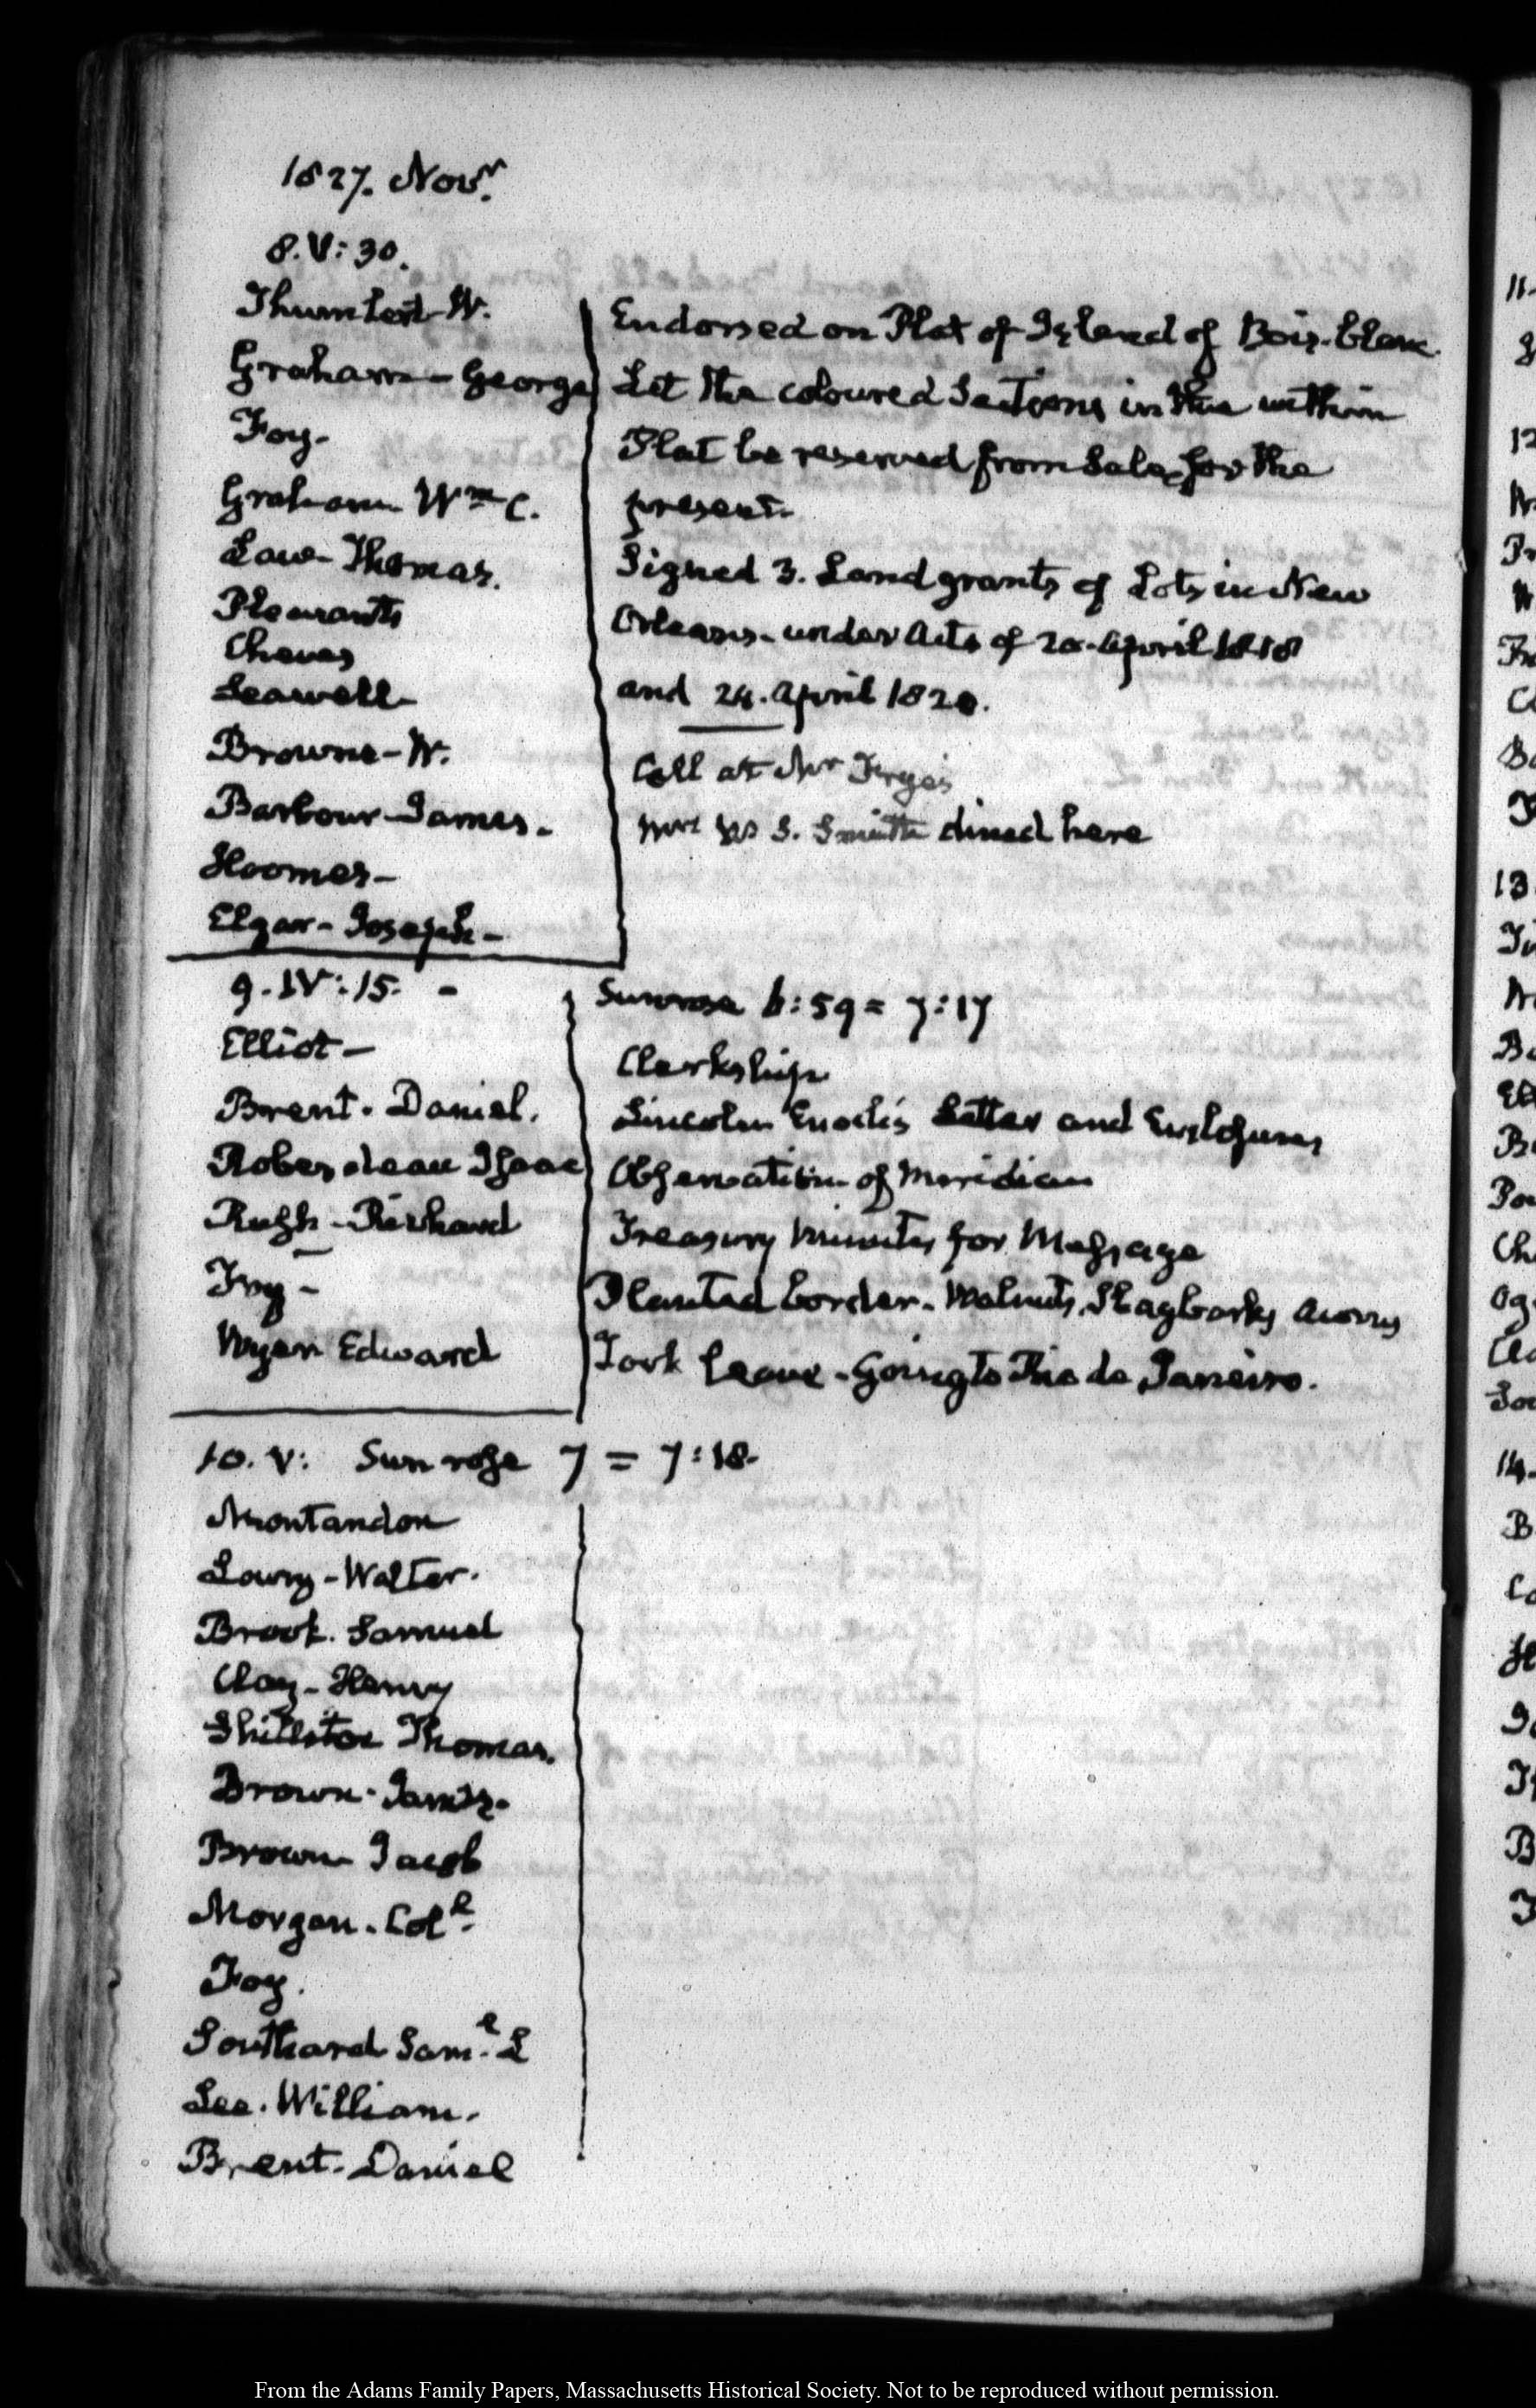 1827. Novr.
8. V:30.
W.
Graham - George
Foy -
Graham Wm C.
Law - Thomas.
Pleasants
Cheves
Seawell -
Browne - W.
Barbour - James -
Hoomes -
Elgar - Joseph -
Endorsed on Plat of Island of Bois-blanc.
Let the coloured Sections in the within
Plat be reserved from Sale, for the
present.
Signed 3. Land grants of Lots in New
Orleans - under Acts of 20. April 1818
and 24. April 1820.
Call at Mr Frye's
Mrs W S. Smith dined here
9. IV:15. -
Elliot -
Brent. Daniel.
Roberdeau Isaac
Rush - Richard
Foy -
Wyer Edward
Sunrose 6:59 = 7:17
Clerkship
Lincoln Enoch's Letter and Enclosures
Observation of Meridian
Treasury Minutes for Message
Planted border - Walnuts, Shagbarks Acorns
Took leave - Going to Rio de Janeiro.
10. V: Sun rose 7 = 7:18.
Montandon
Lowry - Walter.
Brook. Samuel
Clay - Henry
Shillitoe Thomas.
Brown - James.
Brown Jacob
Morgan. Coll.
Foy.
Southard Saml. L
Lee. William.
Brent - Daniel
From the Adams Family Papers, Massachusetts Historical Society. Not to be reproduced without permission.